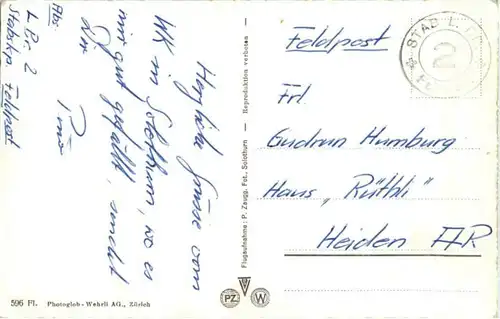 Abs:
L. Br. 2
Stabskp Feldpost
Herzliche Grüsse vom
WK in Solothurn, wo es
mir gut gefällt, sendet
Dir
Feldpost
STAB L.
2
Frl.
Gudrun Humburg
Haus "Rüthli"
Heiden AR
Flugaufnahme: P. Zaugg, Fot., Solothurn — Reproduktion verboten
PZ W
596 Fl. Photoglob-Wehrli AG., Zürich